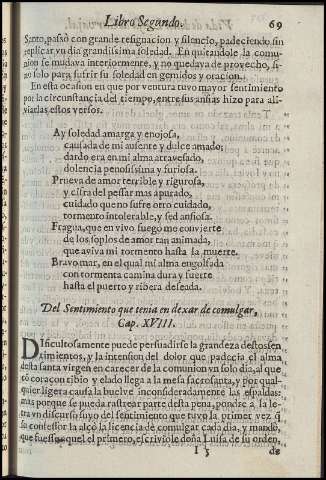 Libro Segundo. 69
Santo, passò con grande resignacion y silencio, padeciendo sin
replicar vn dia grandissima soledad. En quitandole la comu-
nion se mudava interiormente, y no quedava de provecho, si
no solo para sufrir su soledad en gemidos y oracion.
En esta ocasion en que por ventura tuvo mayor sentimiento
por la circunstancia del tiempo, entre sus ansias hizo para ali-
viarlas estos versos.
Ay soledad amarga y enojosa,
causada de mi ausente y dulce amado;
dardo era en mi alma atravesado,
dolencia penosissima y furiosa.
Prueva de amor terrible y rigurosa,
y cifra del pesar mas apurado,
cuidado que no sufre otro cuidado,
tormento intolerable, y sed ansiosa.
Fragua, que en vivo fuego me convierte
de los soplos de amor tan animada,
que aviva mi tormento hasta la muerte.
Bravo mar, en el qual mi alma engolfada
con tormenta camina dura y fuerte
hasta el puerto y ribera deseada.
Del Sentimiento que tenia en dexar de comulgar,
Cap. XVIII.
DIficultosamente puede persuadirse la grandeza destos sen
timientos, y la intension del dolor que padecia el alma
desta santa virgen en carecer de la comunion vn solo dia, al que
cō coraçon tibio y elado llega a la mesa sacrosanta, y por qual-
quier ligera causa la buelve inconsideradamente las espaldas:
mas porque se pueda rastrear parte desta pena, pondre a la le-
tra vn discurso suyo del sentimiento que tuvo la primer vez q̃
su confessor la alçò la licencia de comulgar cada dia, y mandò,
que fuesse aquel el primero, escriviole doña Luisa de su orden,
I 5 de